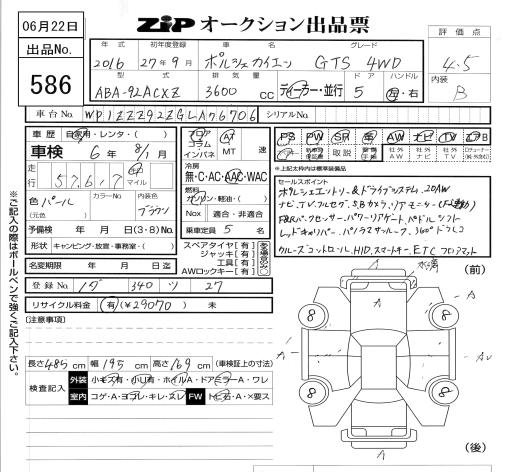 06月22日
ZIP オークション出品票
出品No.
586
評価点
4.5
内装
B
年式 初年度登録 車名 グレード
2016 27年9月 ポルシェカイエン GTS 4WD
型式 排気量 ドア ハンドル
ABA-92ACXZ 3600 cc ディーラー・並行 5 左・右
車台No. WP1ZZZ92ZGLA76706 シリアルNo.
車歴 自家用・レンタ・( )
車検 6年 8/1月
フロア コラム インパネ
AT MT 速
PS PW SR AW ナビ TV
取説 社外AW 社外ナビ 社外TV
※上記太枠内は標準装備品
走行 57,617 km マイル
冷房
無・C・AC・AAC・WAC
色 パール
(元色)
カラーNo.
内装色 ブラウン
燃料
ガソリン・軽油・( )
Nox 適合・非適合
予備検 年 月 日 (3・B)No.
乗車定員 5 名
形状 キャンピング・放宣・事務室・( )
名変期限 年 月 日迄
スペアタイヤ[有]
ジャッキ[有]
工具[有]
AWロックキー[有]
セールスポイント
ポルシェエントリー&ドライブシステム、20AW
ナビ、TV、フルセグ、S、Bカメラ、リアモニター
F&Rパークセンサー、パワーリアゲート、パドルシフト
レッドキャリパー、パノラマサンルーフ、360°ドラレコ
クルーズコントロール、HID、スマートキー、ETC フロアマット
登録No. 340 ソ 27
リサイクル料金 有(¥29070) 未
[注意事項]
長さ 485 cm 幅 195 cm 高さ 169 cm (車検証上の寸法)
検査記入 外装 小キズ有・小凹有・ホイルA・ドアミラーA・ワレ
室内 コゲ・A・ヨゴレ・キレ・スレ FW トビ石・A・×要ス
※ご記入の際はボールペンで強くご記入下さい。
(前)
A
A
8 8
A A
8 8
A
(後)